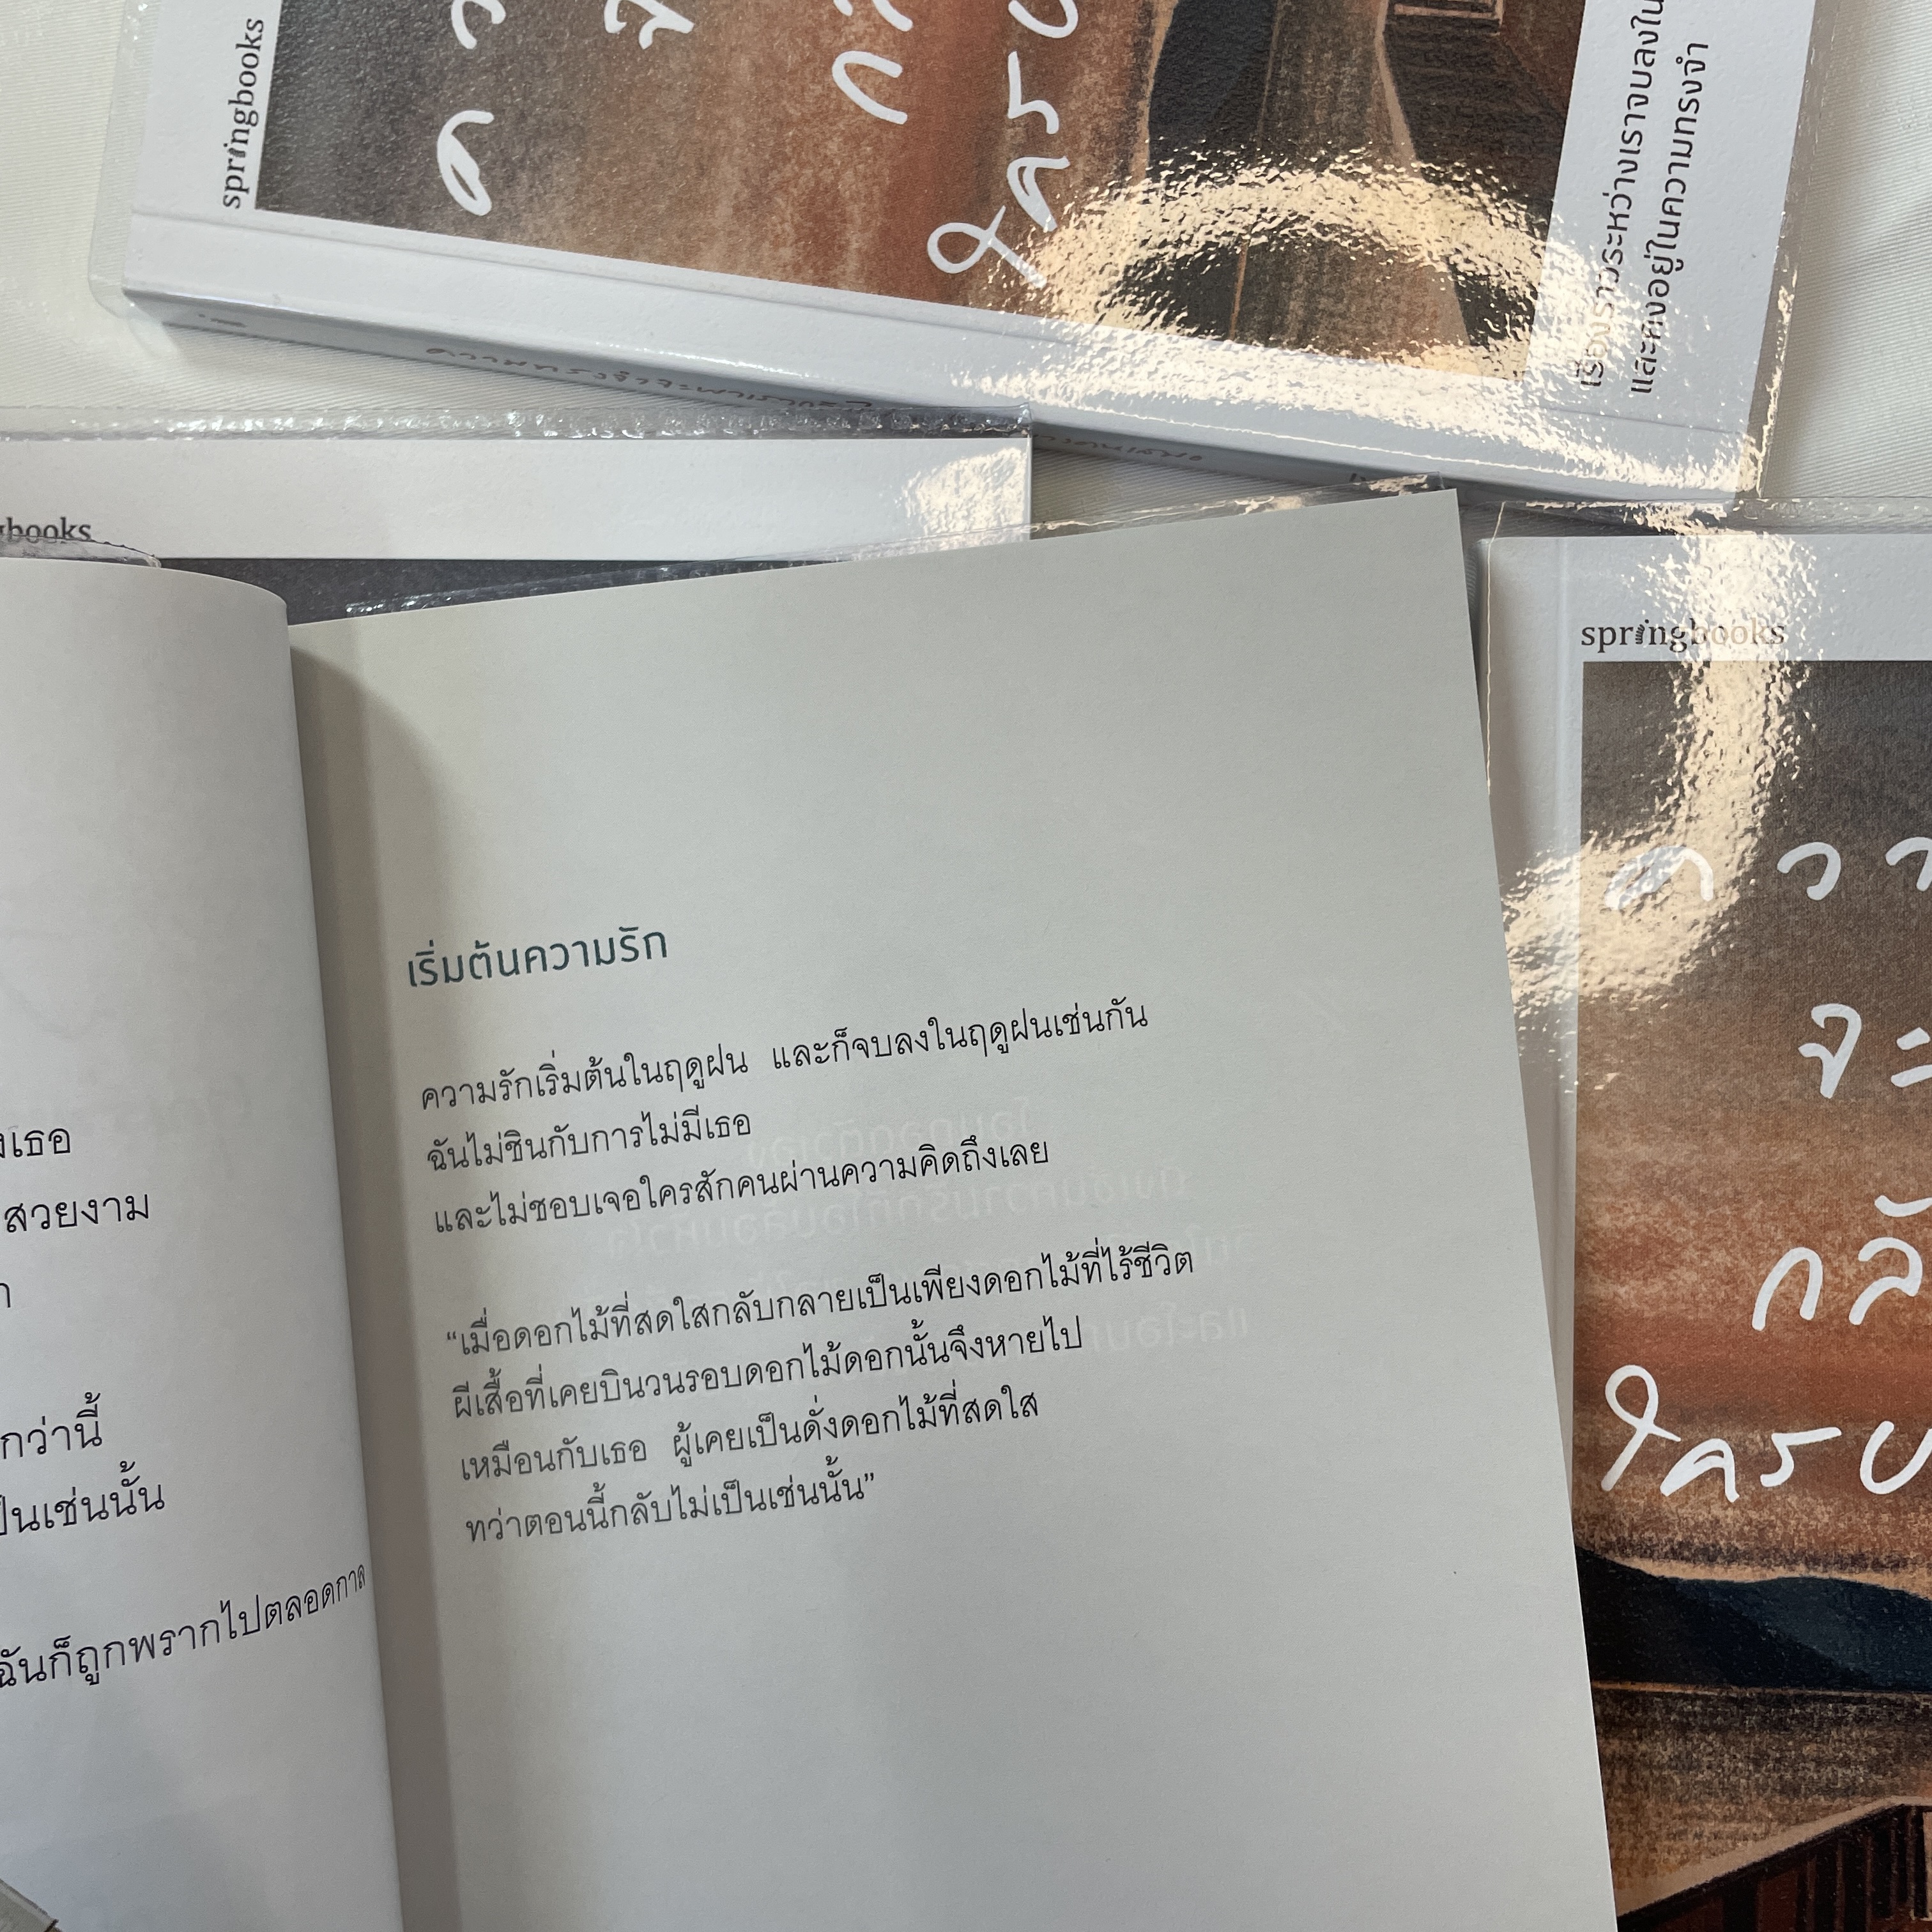 springbooks
เรื่องราวระหว่างเราจบลงใน
และยังอยู่ในความทรงจำ
ความทรงจำจะพาเรากลับ
gbooks
springbooks
ควา
จะ
กลั
ใครบ
งเธอ
สวยงาม
กว่านี้
ป็นเช่นนั้น
ฉันก็ถูกพรากไปตลอดกาล
เริ่มต้นความรัก
ความรักเริ่มต้นในฤดูฝน และก็จบลงในฤดูฝนเช่นกัน
ฉันไม่ชินกับการไม่มีเธอ
และไม่ชอบเจอใครสักคนผ่านความคิดถึงเลย
“เมื่อดอกไม้ที่สดใสกลับกลายเป็นเพียงดอกไม้ที่ไร้ชีวิต
ผีเสื้อที่เคยบินวนรอบดอกไม้ดอกนั้นจึงหายไป
เหมือนกับเธอ ผู้เคยเป็นดั่งดอกไม้ที่สดใส
ทว่าตอนนี้กลับไม่เป็นเช่นนั้น”